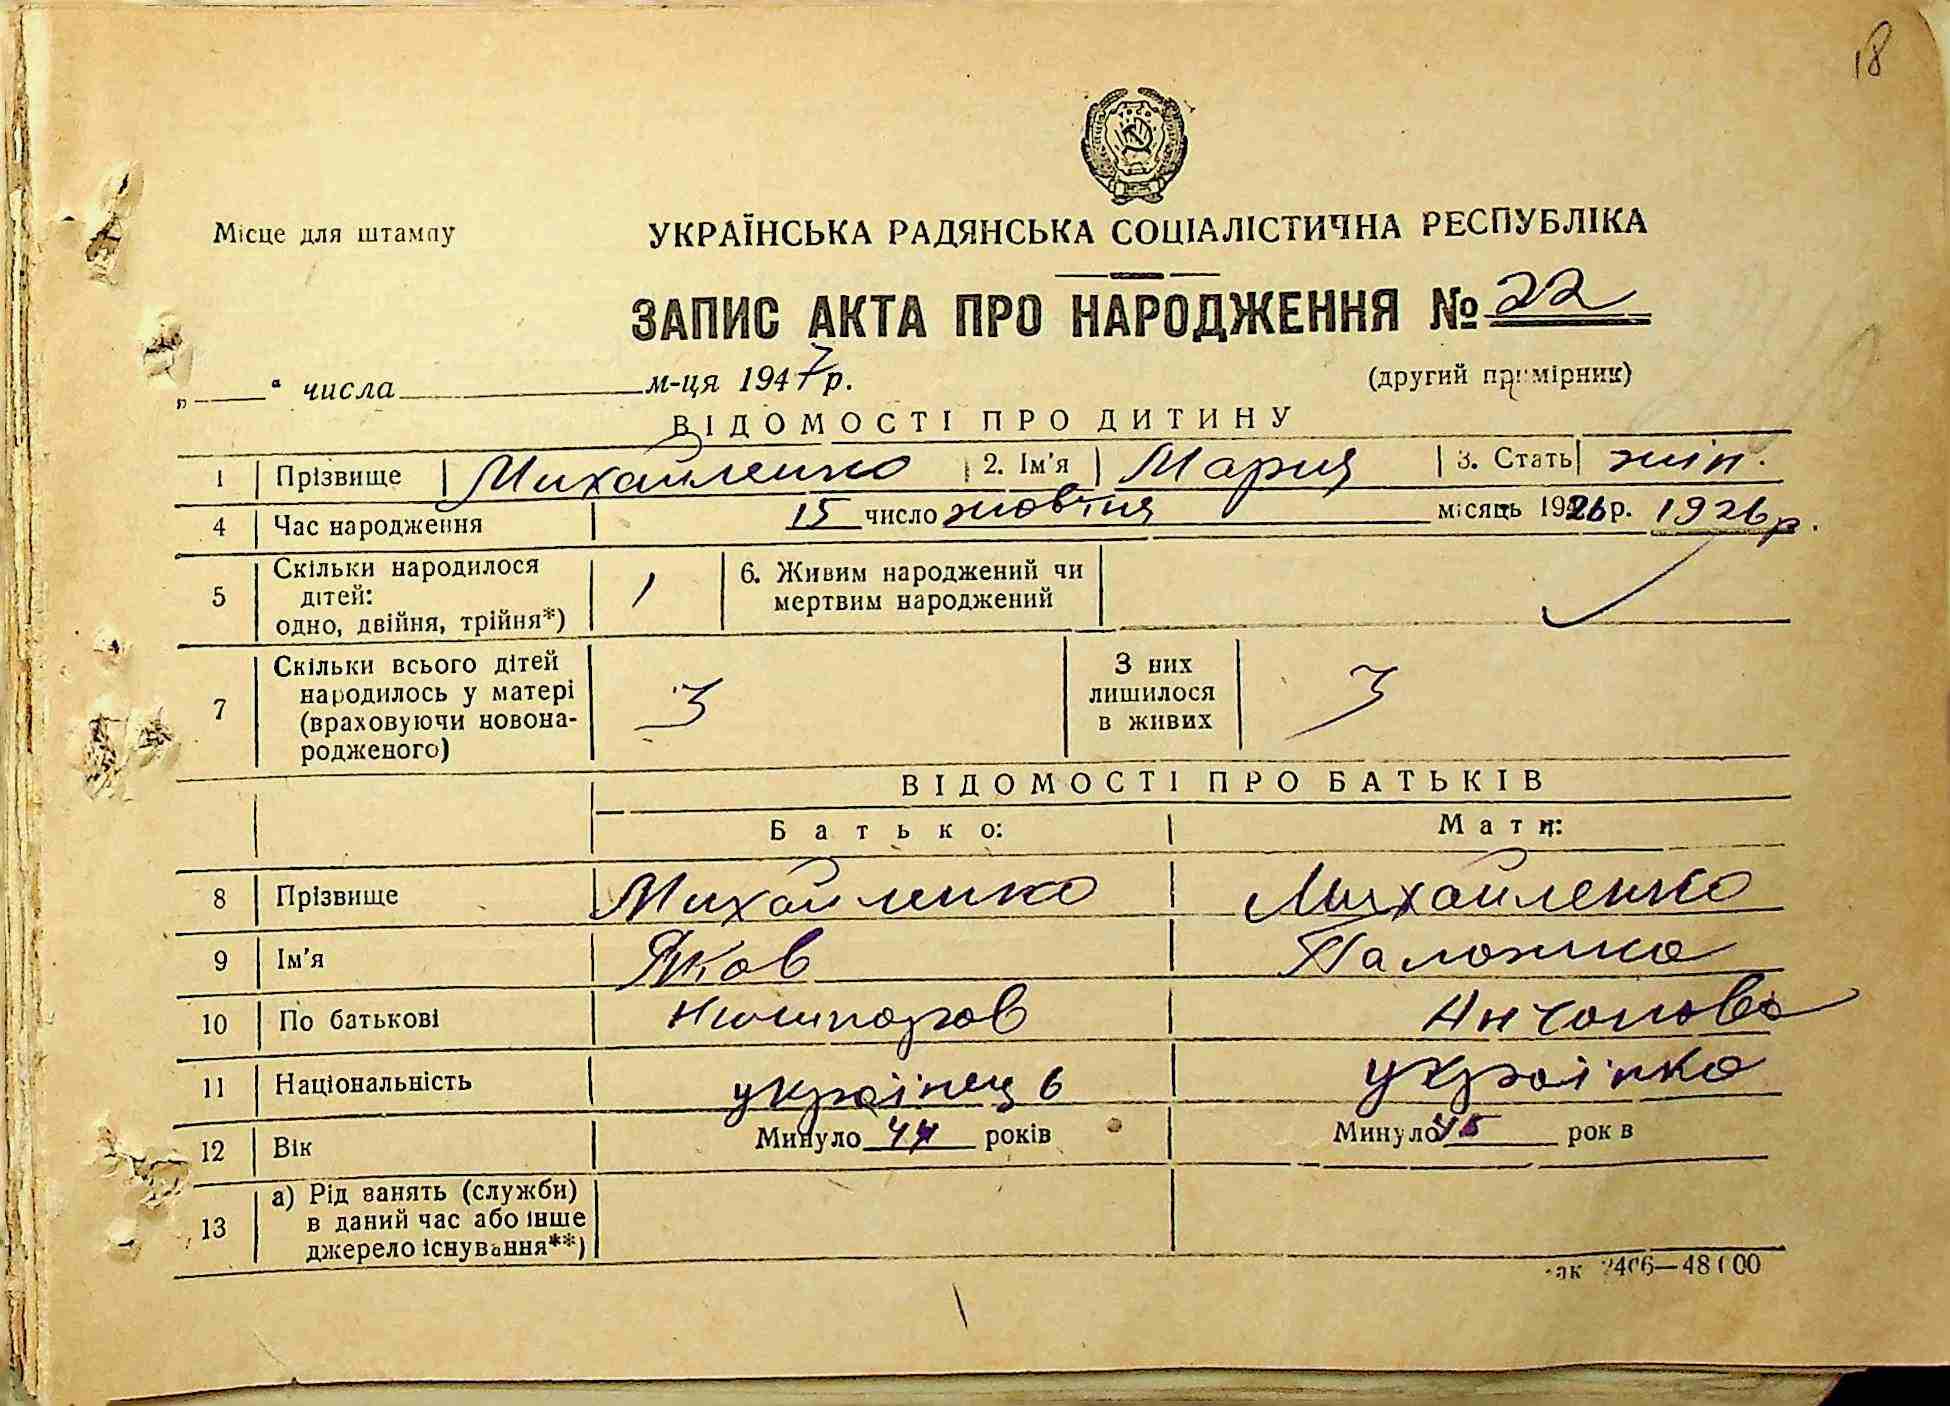 18
Місце для штампу
УКРАЇНСЬКА РАДЯНСЬКА СОЦІАЛІСТИЧНА РЕСПУБЛІКА
ЗАПИС АКТА ПРО НАРОДЖЕННЯ № 22
„ “ числа м-ця 1947 р. (другий примірник)
ВІДОМОСТІ ПРО ДИТИНУ
1 Прізвище Михайленко 2. Ім'я Мария 3. Стать жін.
4 Час народження 15 число жовтня місяць 1926 р. 1926 р.
5 Скільки народилося дітей: одно, двійня, трійня*) 1 6. Живим народжений чи мертвим народжений
7 Скільки всього дітей народилось у матері (враховуючи новонародженого) 3 З них лишилося в живих 3
ВІДОМОСТІ ПРО БАТЬКІВ
Батько: Мати:
8 Прізвище Михайленко Михайленко
9 Ім'я Яков Палажка
10 По батькові Антонова
11 Національність українець українка
12 Вік Минуло 44 років Минуло 45 рок в
13 а) Рід занять (служби) в даний час або інше джерело існування**)